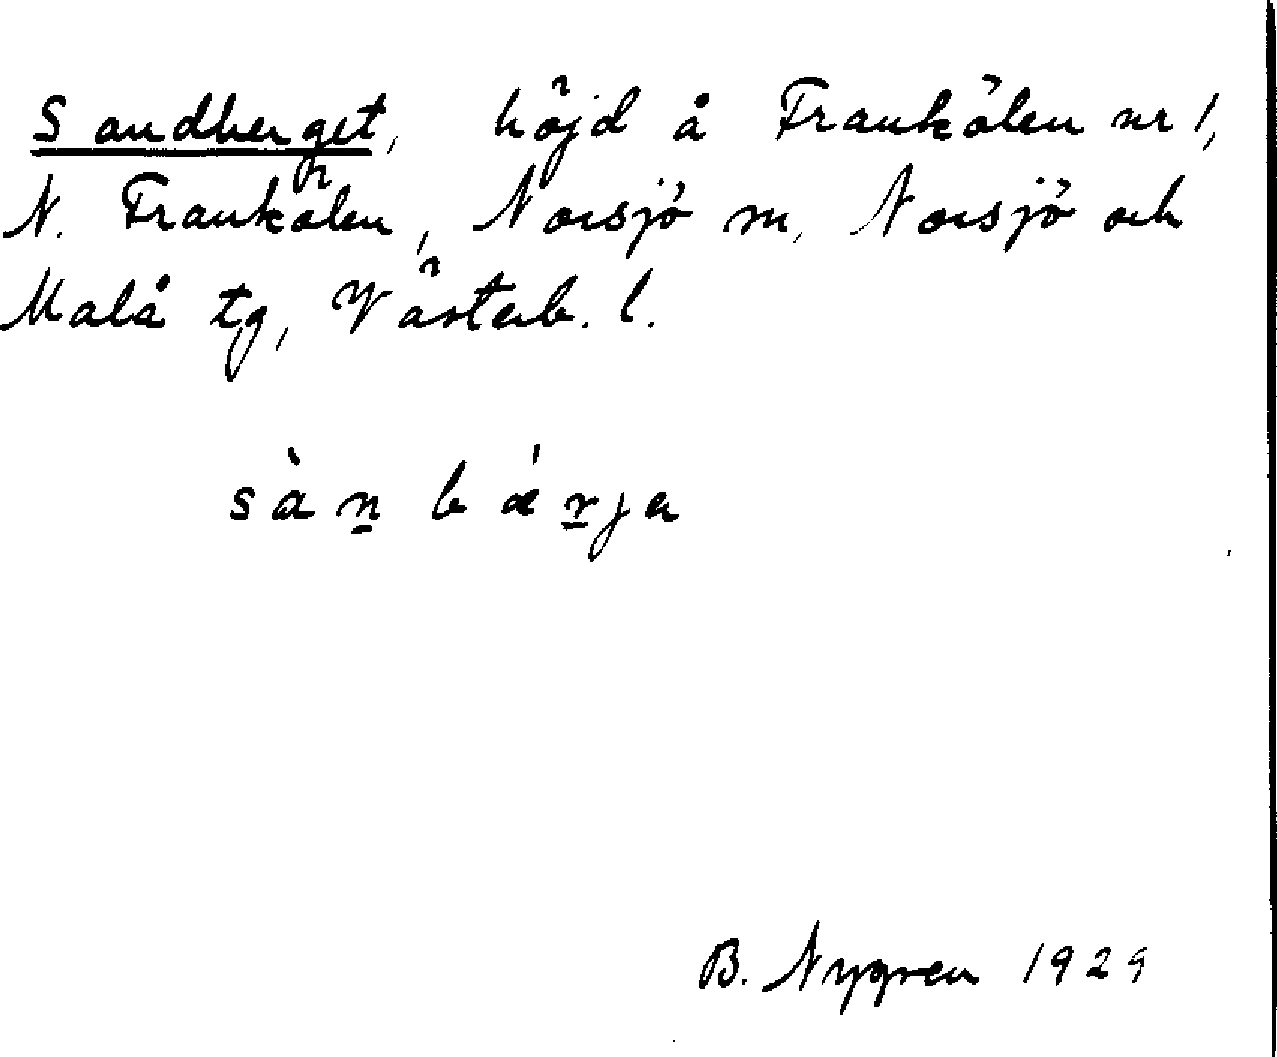 Sandberget, höjd å Frankölen nr 1,
N. Frankölen, Norsjö m, Norsjö och
Malå tg, Västerb. l.
sàn bǽrja
B. Nygren 1929